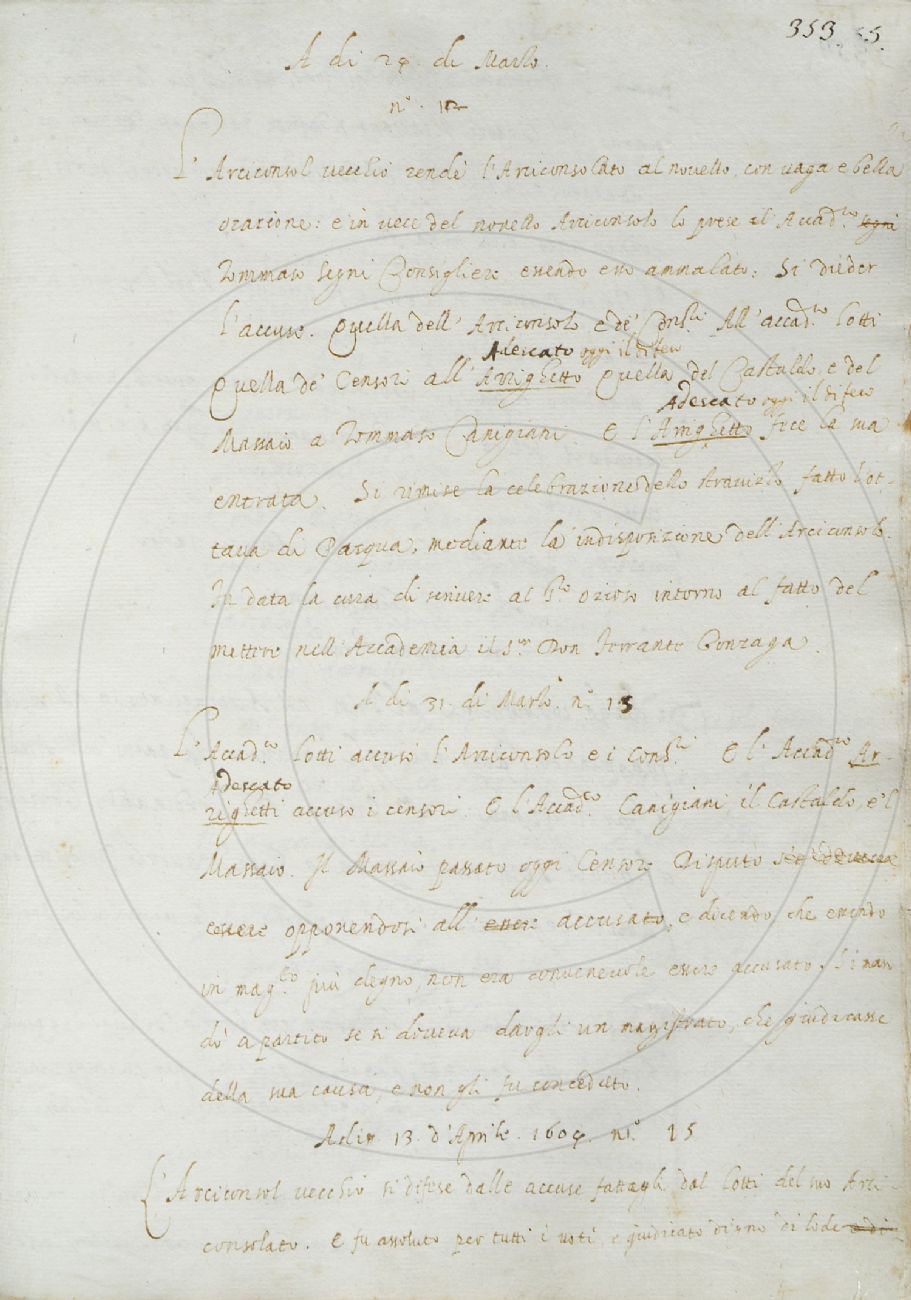 353 55.
A di 24. di Marzo.
n.° 12
L'Arciconsol vecchio rendè l'Arciconsolato al novello, con vaga e bella
orazione: e in vece del novello Arciconsolo lo prese il Accad.co Segni
Tommaso Segni Consigliere essendo esso ammalato: Si dieder
l'accuse. Quella dell'Arciconsolo e de' Cons.ri All'accad.co Lotti
Adescato oggi il difeso
Quella de' Censori all'Arrighetto Quella del Castaldo, e del
Adescato oggi il difeso
Massaio a Tommaso Canigiani. E l'Arrighetto fece la sua
entrata. Si rimise la celebrazione dello stravizzo fatto l'ot-
tava di Pasqua, mediante la indisposizione dell'Arciconsolo.
Fu data la cura di scrivere al S.re Ozioso intorno al fatto del
mettere nell'Accademia il S.or Don Ferrante Gonzaga.
A di 31. di Marzo n.° 13
L'Accad.co Lotti accusò l'Arciconsolo e i Cons.ri E l'Accad.co Ar-
Adescato
righetti accusò i censori. E l'Accad.co Canigiani il Castaldo, e 'l
Massaio. Il Massaio passato oggi Censore Disputò
essere opponendosi all'essere accusato, e dicendo, che essendo
in mag.to più degno, non era convenevole essere accusato. Si man
dò a partito se si doveva dargli un magistrato, che giudicasse
della sua causa, e non gli fu conceduto.
Adi 13. d'Aprile. 1604. n.° 15
L'Arciconsol vecchio si difese dalle accuse fattagli dal Lotti del suo Arci-
consolato. E fu assoluto per tutti i voti, e giudicato digno di lode e di